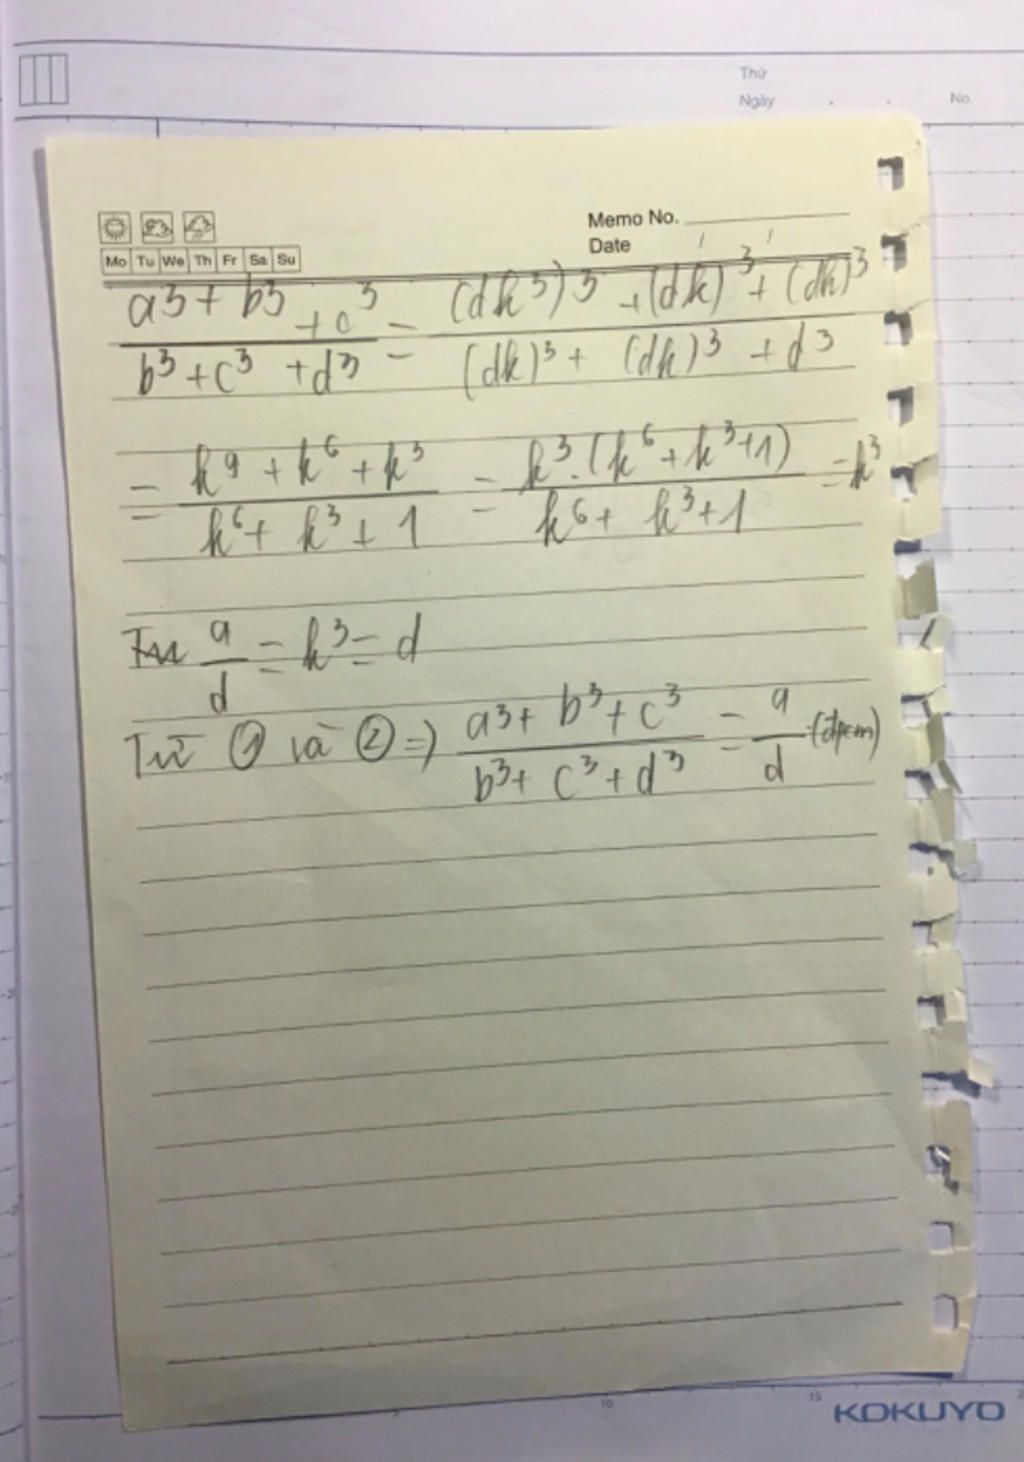 Thứ
Ngày No.
Memo No.
Date / /
Mo Tu We Th Fr Sa Su
a³ + b³ + c³ / b³ + c³ + d³ = (dk³)³ + (dk)³ + (dk)³ / (dk)³ + (dk)³ + d³
= k⁹ + k⁶ + k³ / k⁶ + k³ + 1 = k³.(k⁶ + k³ + 1) / k⁶ + k³ + 1 = k³
a / d = k³ = d
Từ ① và ② => a³ + b³ + c³ / b³ + c³ + d³ = a / d (đpcm)
10 15
KOKUYO